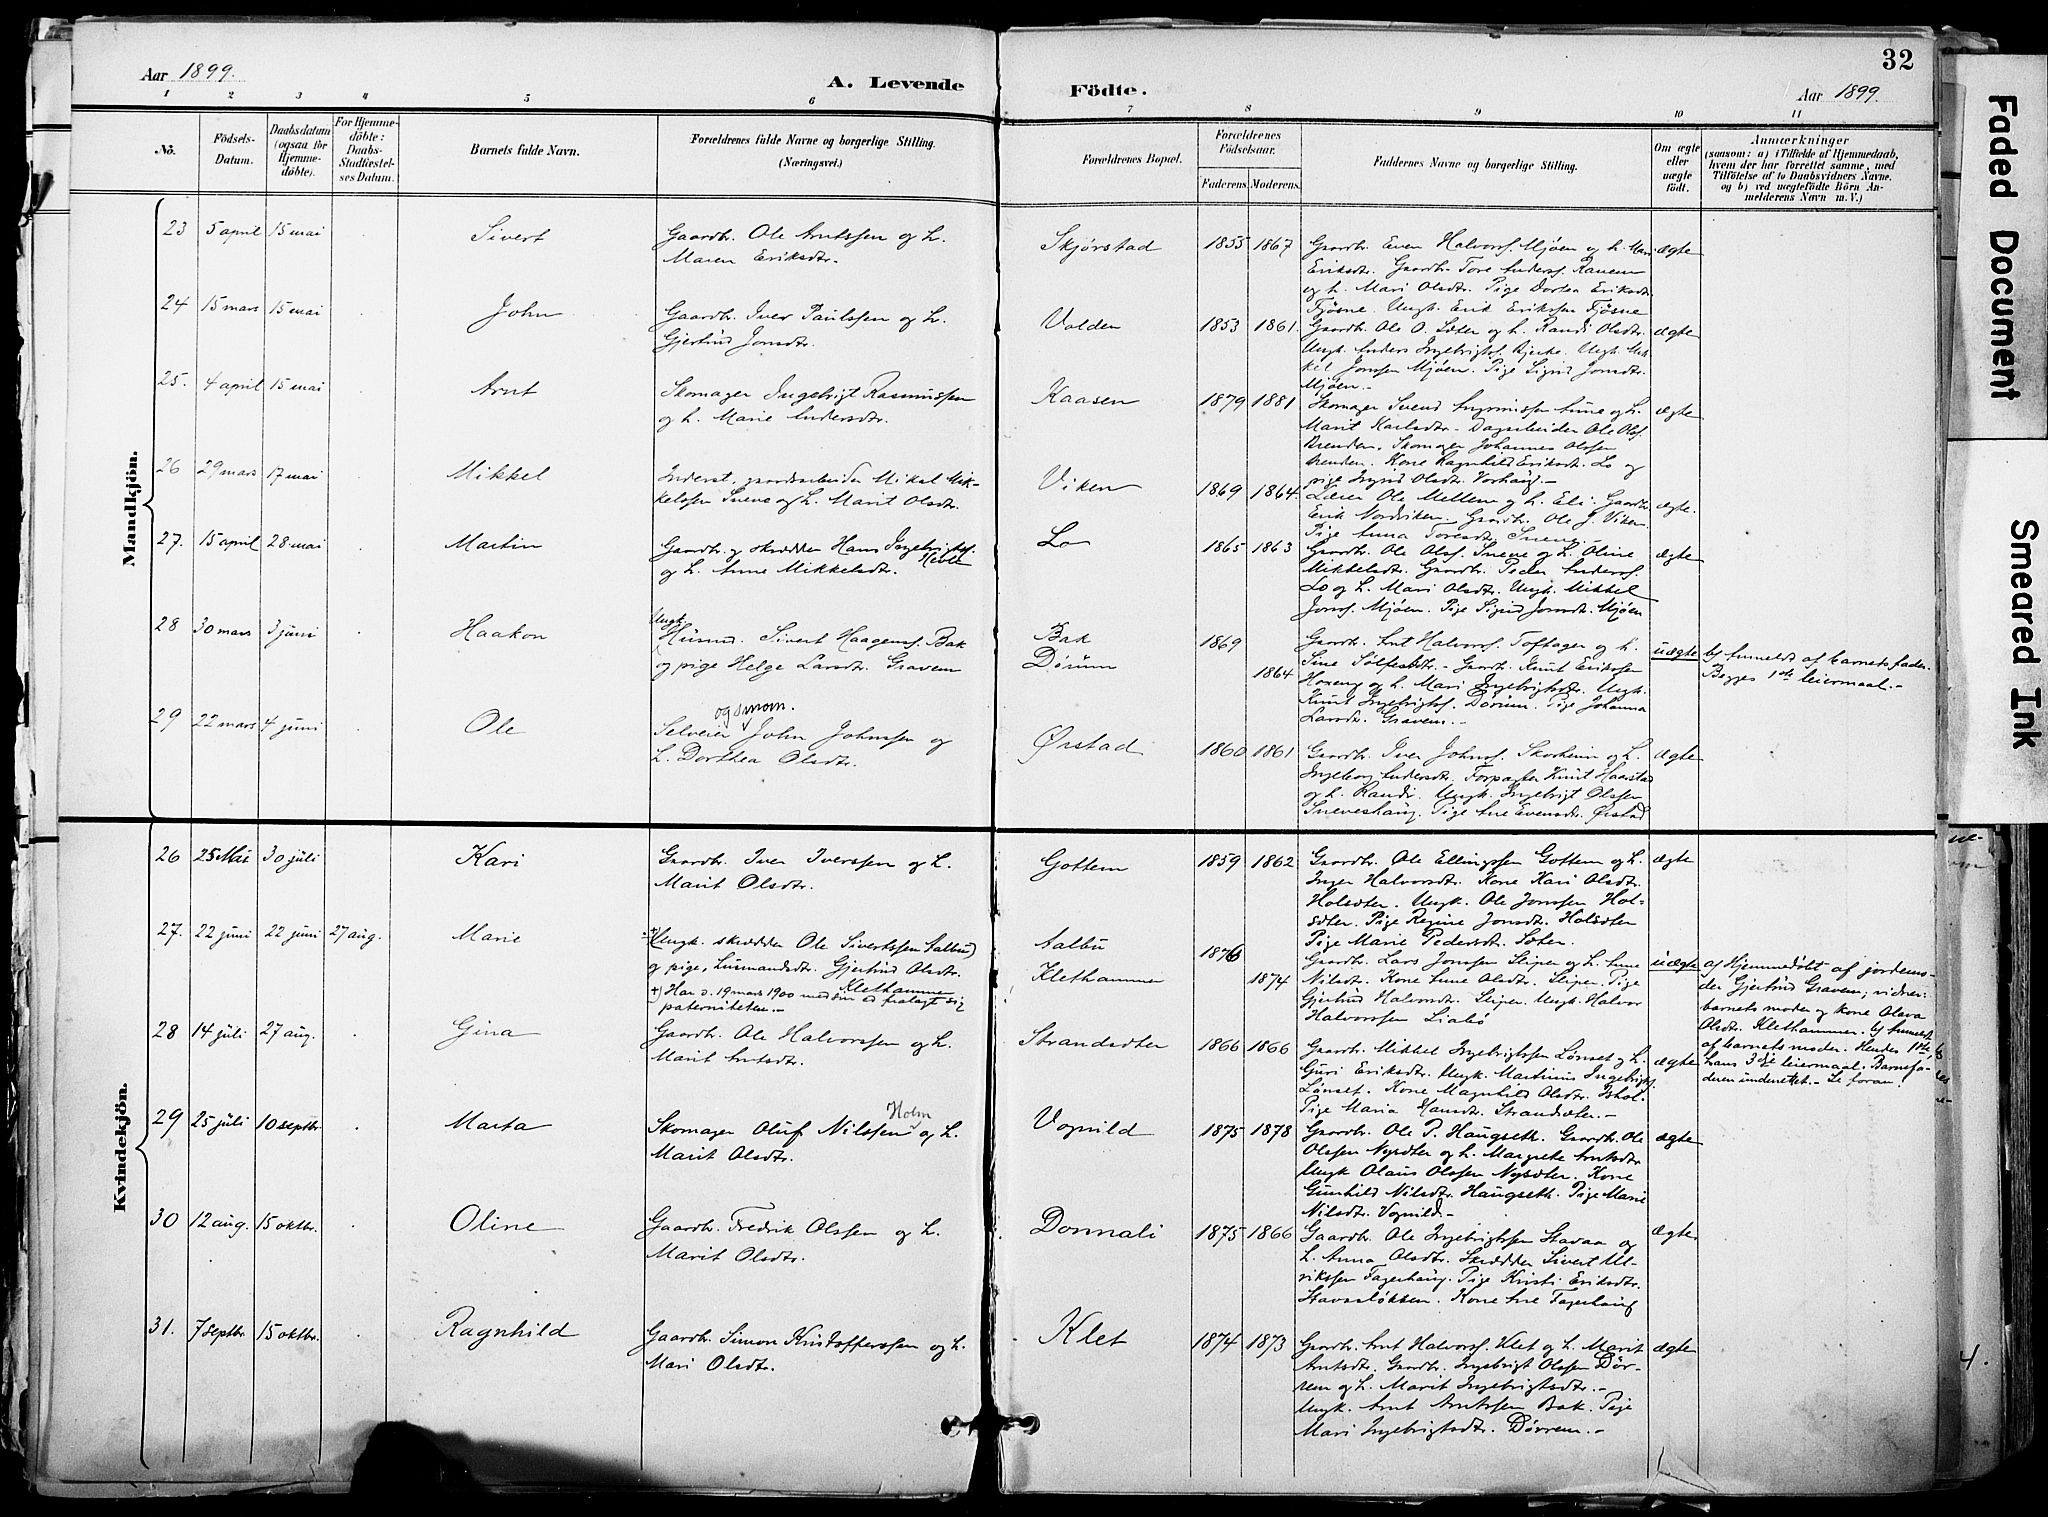 Aar 1899.
A. Levende
Födte.
32
Aar 1899.
1 2 3 4 5 6 7 8 9 10 11
No.
Födsels-
Datum.
Daabsdatum
(ogsaa for
Hjemme-
döbte).
For Hjemme-
döbte:
Daabs-
Stadfæstel-
ses Datum.
Barnets fulde Navn.
Forældrenes fulde Navne og borgerlige Stilling.
(Næringsvei.)
Forældrenes Bopæl.
Forældrenes
Födselsaar.
Faderens. Moderens.
Faddernes Navne og borgerlige Stilling.
Om ægte
eller
uægte
födt.
Anmærkninger
(saasom: a) i Tilfælde af Hjemmedaab,
hvem der har forrettet samme, med
Tilföielse af to Daabsvidners Navne,
og b) ved uægtefödte Börn An-
melderens Navn m. V.)
Mandkjön.
23 5 april 15 mai Sivert
Gaardbr. Ole Arntssen og h.
Maren Eriksdtr.
Skjørstad 1855 1867
Gaardbr. Even Halvors. Mjøen og h. Mari
Eriksdtr. Gaardbr. Tore Anders. Ranem
og h. Mari Olsdtr. Pige Dortea Eriksdtr.
Fjøsne. Ungk. Erik Erikssen Fjøsne
ægte
24 15 mars 15 mai John
Gaardbr. Iver Paulssen og h.
Gjertrud Jonsdtr.
Volden 1853 1861.
Gaardbr. Ole O. Sæter og h. Randi Olsdtr.
Ungk. Anders Ingebrigts. Bjerke. Ungk. Mik-
kel Jonssen Mjøen. Pige Sigrid Jonsdtr.
Mjøen.-
ægte
25. 4 april 15 mai Arnt
Skomager Ingebrigt Rasmussen
og h. Marie Andersdtr.
Kaasen 1879 1881
Skomager Svend Aune og h.
Marit Karlsdtr. - Dagarbeider Ole Ols.
Brenden. Skomager Johannes Olssen
Brenden. Kone Ragnhild Eriksdt. Lo og
pige Ingrid Olsdt. Vorhaug.-
ægte
26 29 mars 17 mai Mikkel
Inderst, gaardsarbeider Mikal Mik-
kelssen Snene og h. Marit Olsdt.
Viken 1869 1864.
Lærer Ole Mellem og h. Eli. Gaardbr.
Erik Nordviken. Gaardbr. Ole J. Viken
Pige Anna Toresdt. Snene.-
ægte.
27. 15 april 28 mai Martin
Gaardbr. og skrædder Hans Ingebrigts.
Hevle
og h. Anne Mikkelsdtr.
Lo 1865 1863
Gaardbr. Ole Ols. Snene og h. Oline
Mikkelsdt. Gaardbr. Peder Anders.
Lo og h. Mari Olsdt. Ungk. Mikkel
Jons. Mjøen. Pige Sigrid Jonsdt. Mjøen
ægte
28 30 mars 3 juni Haakon
Ungk.
Husmd. Sivert Haagens. Bak
og pige Helge Larsdt. Gravem
Bak
Dørum
1869
1864
Gaardbr. Arnt Halvors. Toftager og h.
Sine Sølfestdt. - Gaardbr. Knut Erikssen
Hoxeng og h. Mari Ingebrigtsdt. Ungk.
Knut Ingebrigts. Dørum. Pige Johanna
Larsdt. Gravem.-
uægte
b) Anmeldt af barnets fader.
Begges 1ste leiermaal.-
29 22 mars 4 juni Ole
og smom.
Selveier John Johnssen og
h. Dorthea Olsdtr.
Ørstad 1860 1861
Gaardbr. Iver Johns. Skorheim og h.
Ingeborg Andersdt. Forpagter Knut Haarstad
og h. Randi. Ungk. Ingebrigt Olssen
Sneveshaug. Pige Ane Evensdt. Ørstad
ægte
Kvindekjön.
26 25 Mai 30 juli Kari
Gaardbr. Iver Iverssen og h.
Marit Olsdtr.
Gottem 1859 1862
Gaardbr. Ole Ellingssen Gottem og h.
Inger Halvorsdt. Kone Kari Olsdt.
Holsæter. Ungk. Ole Jonssen Hol-
sæter. Pige Regine Jonsdt. Holsæter
Pige Marie Pedersdt. Sæter.
ægte
27. 22 juni 22 juni 27 aug. Marie
+) (Ungk. skrædder Ole Sivertssen Aalbu)
og pige, husmandsdt. Gjertrud Olsdt.
Klethammer
+) Har d. 19 mars 1900 med sin ed fralagt sig
paterniteten.-
Aalbu
Klethammer
1876
1874
Gaardbr. Lars Jonssen Sliper og h. Ane
Nilsdt. Kone Ane Olsdt. Sliper. Pige
Gjertrud Halvorsdt. Sliper. Ungk. Halvor
Halvorssen Liabø
uægte
a) Hjemmedøbt af jordemo-
der Gjertrud Gravem; vidner:
barnets moder og kone Olava
Olsdt. Klethammer. b) Anmeldt
af barnets moder. Hendes 1ste,
hans 3dje leiermaal. Barnefa-
deren underrettet. - Se foran!
28 14 juli 27 aug. Gina
Gaardbr. Ole Halvorssen og h.
Marit Arntsdt.
Strandsæter 1866 1866
Gaardbr. Mikkel Ingebrigtssen Lønset og h.
Guri Eriksdt. Ungk. Martinus Ingebrigts.
Lønset. Kone Magnhild Olsdt. Ishol.
Pige Maria Hansdt. Strandsæter.-
ægte
29 25 juli 10 septbr. Marta
Holm
Skomager Oluf Nilssen og h.
Marit Olsdt.
Vognild 1875 1878
Gaardbr. Ole P. Haugseth. Gaardbr. Ole
Olssen Nysæter og h. Margrete Arntsdt.
Ungk Olaus Olssen Nysæter. Kone
Gunhild Nilsdt. Haugseth. Pige Marie
Nilsdt. Vognild.-
ægte
30 12 aug. 15 oktbr. Oline
Gaardbr. Fredrik Olssen og h.
Marit Olsdtr.
Donnali 1875 1866
Gaardbr. Ole Ingebrigtssen Stavaa og
h. Anna Olsdt. Skrædder Sivert Ul-
rikssen Fagerhaug. Pige Kristi Eriksdt.
Stavaaløkken. Kone Ane Fagerhaug
ægte
31. 7 septbr. 15 oktbr. Ragnhild
Gaardbr. Simon Kristofferssen og h.
Mari Olsdtr.
Klet 1874 1873
Gaardbr. Arnt Halvors. Klet og h. Marit
Arntsdt. Gaardbr. Ingebrigt Olssen Dør-
rem og h. Marit Ingebrigtsdt.-
Ungk. Arnt Arntssen Bak. Pige
Mari Ingebrigtsdt. Dørrem.-
ægte
Faded Document
Smeared Ink